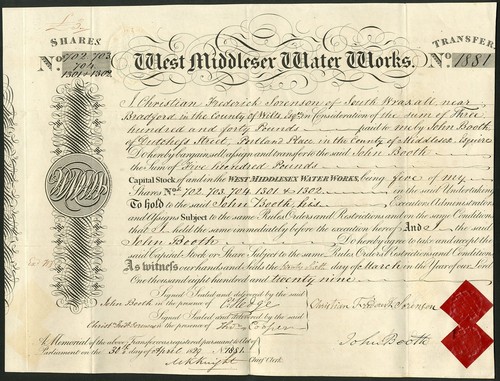 SHARES
TRANSFER
No. 702 703
704
1301 & 1302
West Middlesex Water Works.
No. 1881
I Christian Frederick Sorenson of South Wraxall near
Bradford in the County of Wilts Esqre in Consideration of the sum of Three
hundred and forty Pounds paid to me by John Booth
of Dutchess Street, Portland Place in the County of Middlesex Esquire
Do hereby bargain, sell, assign and transfer to the said John Booth
the Sum of Five hundred Pounds
Capital Stock of and in the WEST MIDDLESEX WATER WORKS, being five of my
Shares Nos. 702 703 704 1301 & 1302 in the said Undertaking
To hold to the said John Booth, his Executors, Administrators
and Assigns Subject to the same Rules Orders and Restrictions and on the same Conditions
that I held the same immediately before the execution hereof And I the said
John Booth Do hereby agree to take and accept the
said Capital Stock or Share Subject to the same Rules Orders Restrictions and Conditions
As witness our hands and Seals the day of March in the Year of our Lord
One thousand eight hundred and twenty nine
Signed Sealed and delivered by the said
John Booth in the presence of
Christian Frederick Sorenson
Signed Sealed and delivered by the said
Christn Fredk Sorenson in the presence of Thos Cooper
John Booth
A Memorial of the above Transfer was registered pursuant to Act of
Parliament on the 30th of April 1829 No. 1881.
MKnight Chief Clerk.